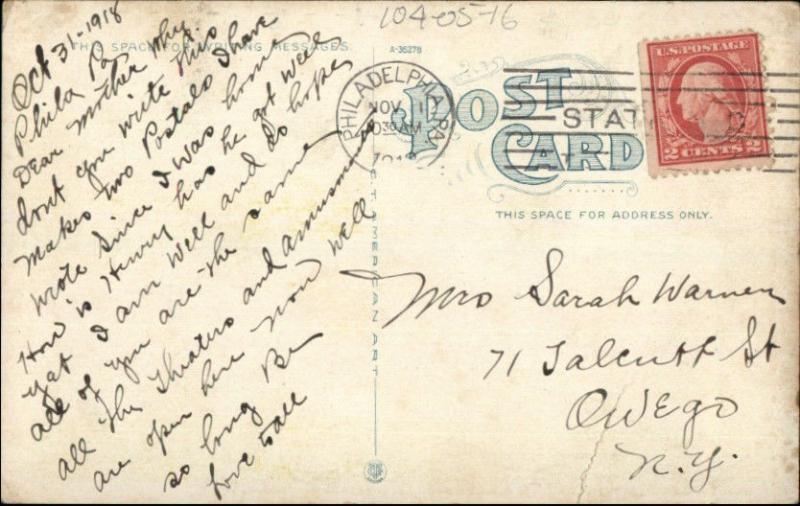 104-05-16
THIS SPACE FOR WRITING MESSAGES.
A-35278
Oct 31-1918
Phila Pa
Dear Mother why
dont you write this
makes two Postals I have
wrote since I was home
How is Henry has he got well
yat I am well and do hope
all of you are the same
all the Theaters and amusments
are open here now well
so long Be
love to all
PHILADELPHIA, PA.
NOV 1
1030 AM
1918
STAT
POST
CARD
U.S. POSTAGE
2 CENTS 2
THIS SPACE FOR ADDRESS ONLY.
AMERICAN ART
Mrs Sarah Warner
71 Talcutt St
Owego
N.Y.